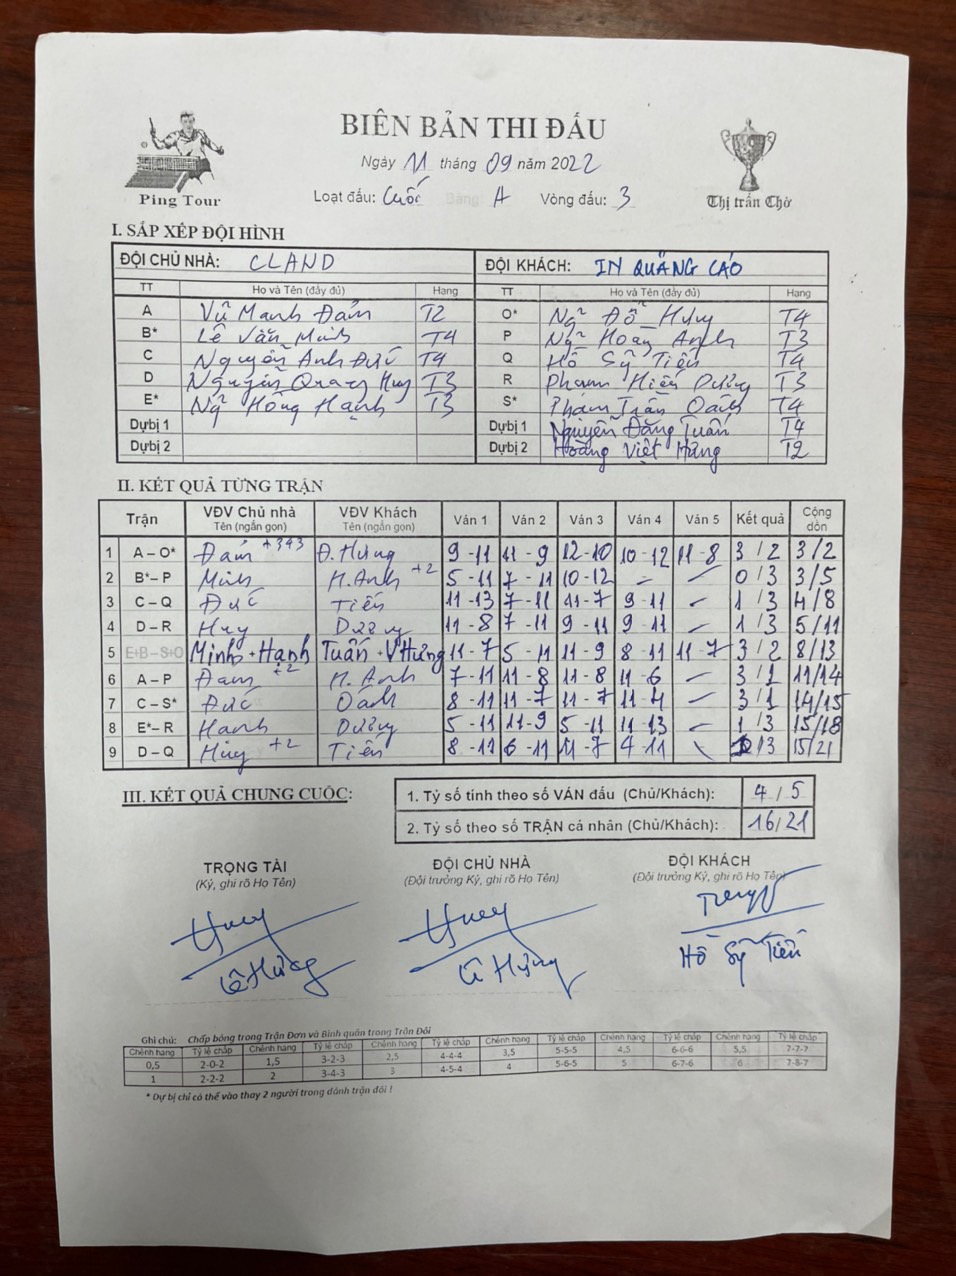 BIÊN BẢN THI ĐẤU
Ngày 11 tháng 09 năm 2022
Ping Tour
Loạt đấu: Cuối Bảng A Vòng đấu: 3
Thị trấn Chờ
I. SẮP XẾP ĐỘI HÌNH
ĐỘI CHỦ NHÀ: CLAND ĐỘI KHÁCH: IN QUẢNG CÁO
TT Họ và Tên (đầy đủ) Hạng TT Họ và Tên (đầy đủ) Hạng
A Vũ Mạnh Đảm T2 O* Ng Đỗ Hưng T4
B* Lê Văn Minh T4 P Ng Hoàng Anh T3
C Nguyễn Anh Đức T4 Q Hồ Sỹ Tiến T4
D Nguyễn Quang Huy T3 R Phạm Hiến Dương T3
E* Ng Hồng Hạnh T3 S* Phạm Trần Oánh T4
Dự bị 1 Dự bị 1 Nguyễn Đăng Tuấn T4
Dự bị 2 Dự bị 2 Hoàng Việt Hưng T2
II. KẾT QUẢ TỪNG TRẬN
Trận VĐV Chủ nhà VĐV Khách Ván 1 Ván 2 Ván 3 Ván 4 Ván 5 Kết quả Cộng dồn
Tên (ngắn gọn) Tên (ngắn gọn)
1 A – O* Đảm +343 Đ. Hưng 9-11 11-9 12-10 10-12 11-8 3/2 3/2
2 B* – P Minh H. Anh +2 5-11 7-11 10-12 – – 0/3 3/5
3 C – Q Đức Tiến 11-13 7-11 11-7 9-11 – 1/3 4/8
4 D – R Huy Dương 11-8 7-11 9-11 9-11 – 1/3 5/11
5 E+B – S+O Minh+Hạnh Tuấn+V Hưng 11-7 5-11 11-9 8-11 11-7 3/2 8/13
6 A – P Đảm +2 H. Anh 7-11 11-8 11-8 11-6 – 3/1 11/14
7 C – S* Đức Oánh 8-11 11-7 11-7 11-4 – 3/1 14/15
8 E* – R Hạnh Dương 5-11 11-9 5-11 11-13 – 1/3 15/18
9 D – Q Huy +2 Tiến 8-11 6-11 11-7 4-11 \ /3 15/21
III. KẾT QUẢ CHUNG CUỘC:
1. Tỷ số tính theo số VÁN đấu (Chủ/Khách): 4/5
2. Tỷ số theo số TRẬN cá nhân (Chủ/Khách): 16/21
TRỌNG TÀI ĐỘI CHỦ NHÀ ĐỘI KHÁCH
(Ký, ghi rõ Họ Tên) (Đội trưởng Ký, ghi rõ Họ Tên) (Đội trưởng Ký, ghi rõ Họ Tên)
Lê Hưng Lê Hưng Hồ Sỹ Tiến
Ghi chú: Chấp bóng trong Trận Đơn và Bình quân trong Trận Đôi
Chênh hạng Tỷ lệ chấp Chênh hạng Tỷ lệ chấp Chênh hạng Tỷ lệ chấp Chênh hạng Tỷ lệ chấp Chênh hạng Tỷ lệ chấp Chênh hạng Tỷ lệ chấp
0,5 2-0-2 1,5 3-2-3 2,5 4-4-4 3,5 5-5-5 4,5 6-6-6 5,5 7-7-7
1 2-2-2 2 3-4-3 3 4-5-4 4 5-6-5 5 6-7-6 6 7-8-7
* Dự bị chỉ có thể vào thay 2 người trong đánh trận đôi !